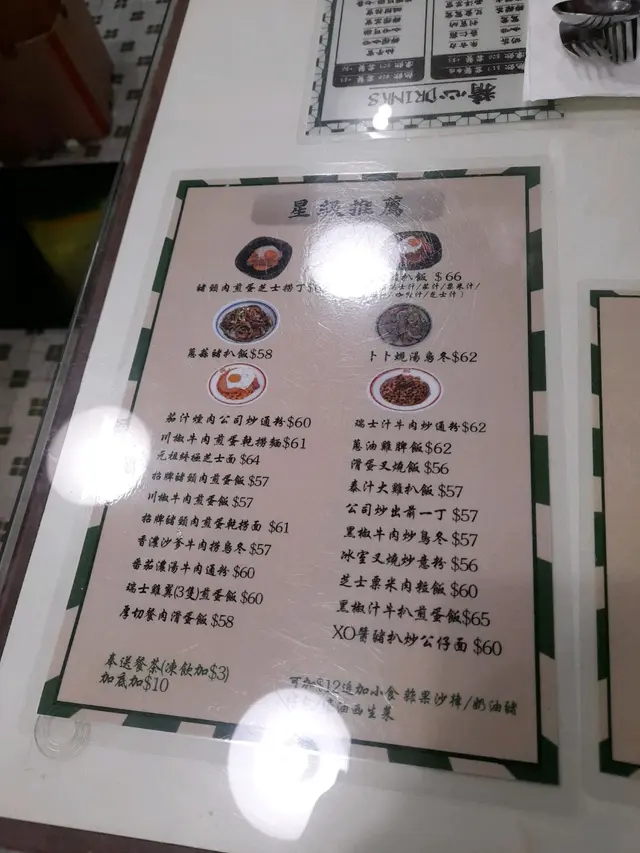 精心DRINKS
星級推薦
豬頸肉煎蛋芝士撈丁$
扒飯 $66
蔥菇豬扒飯$58
卜卜蜆湯烏冬$62
茄汁煙肉公司炒通粉$60
川椒牛肉煎蛋乾撈麵$61
元祖終極芝士面 $64
招牌豬頸肉煎蛋飯 $57
川椒牛肉煎蛋飯 $57
招牌豬頸肉煎蛋乾撈面 $61
香濃沙爹牛肉撈烏冬 $57
番茄濃湯牛肉通粉 $60
瑞士雞翼(3隻)煎蛋飯 $60
厚切餐肉滑蛋飯 $58
瑞士汁牛肉炒通粉$62
蔥油雞髀飯$62
滑蛋叉燒飯 $56
泰汁大雞扒飯 $57
公司炒出前一丁 $57
黑椒牛肉炒烏冬 $57
冰室叉燒炒意粉 $56
芝士粟米肉粒飯 $60
黑椒汁牛扒煎蛋飯$65
XO醬豬扒炒公仔面 $60
奉送餐茶(凍飲加$3)
加底加$10
可加$12追加小食 雜果沙律/奶油豬
油西生菜